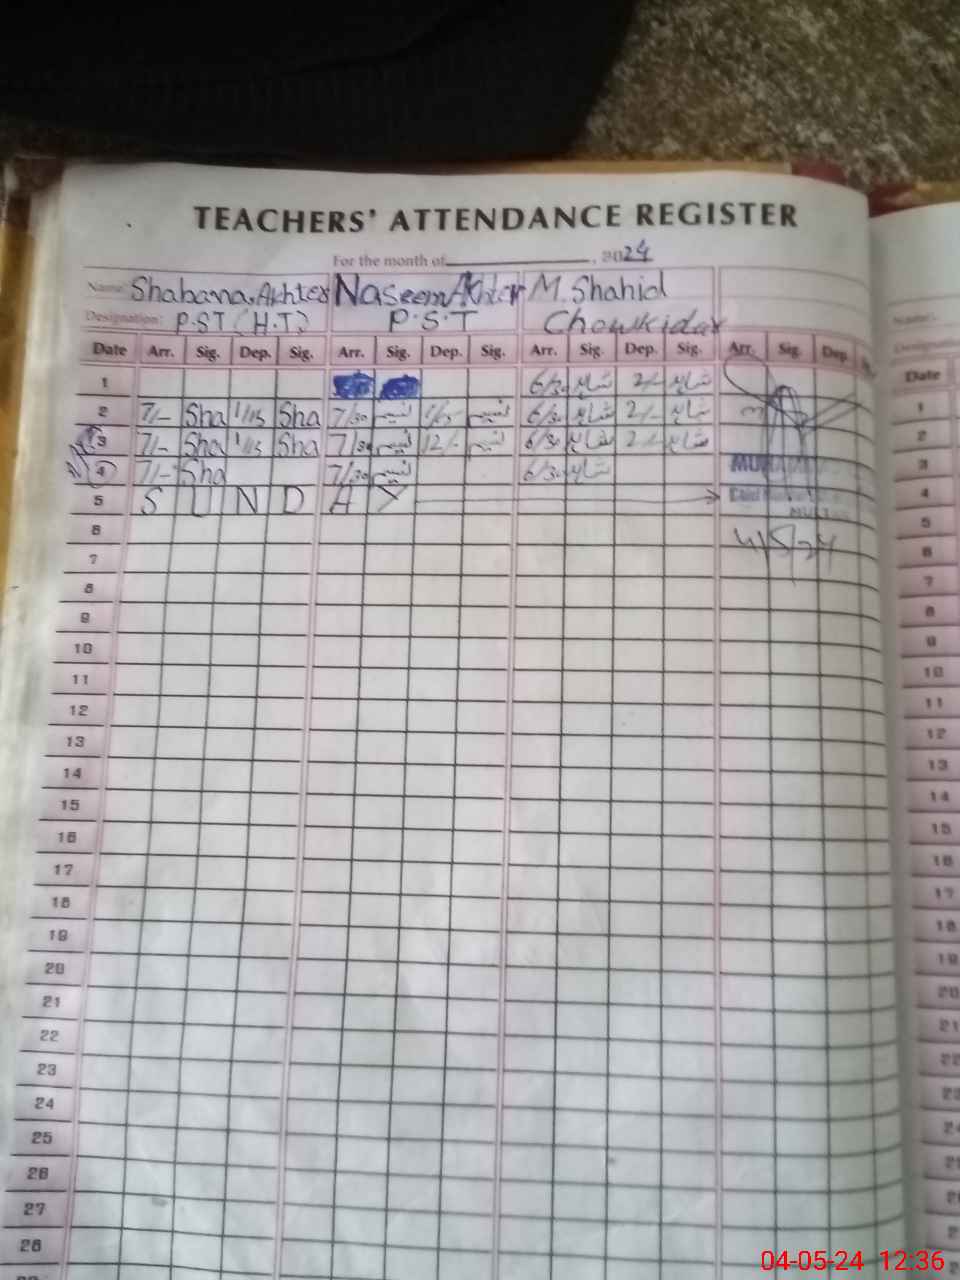 TEACHERS' ATTENDANCE REGISTER
For the month of , 2024
Name: Shabana Akhter Naseem Akhter M. Shahid
Designation: P.S.T (H.T) P.S.T Chowkidar
Date Arr. Sig. Dep. Sig. Arr. Sig. Dep. Sig. Arr. Sig. Dep. Sig. Arr. Sig. Dep.
Date
1 6/30 شاہد 2/- شاہد
2 7/- Sha 1/15 Sha 7/30 نسیم نسیم 6/30 شاہد 2/- شاہد
3 7/- Sha 1/15 Sha 7/30 نسیم 12/- نسیم 6/30 شاہد 2/- شاہد
4 7/- Sha 7/30 نسیم 6/30 شاہد
5 S U N D A Y
6 4/5/24
7
8
9
10
11
12
13
14
15
16
17
18
19
20
21
22
23
24
25
26
27
28
1
2
3
4
5
6
7
8
9
10
11
12
13
14
15
16
17
18
19
20
21
22
23
04-05-24 12:36